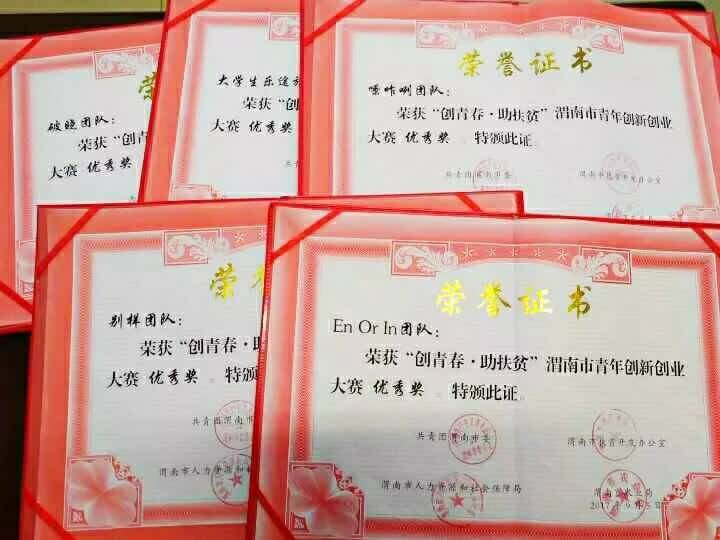 荣
破晓团队：
荣获“创
大赛 优秀奖
大学生乐途
荣获“创
大赛 优秀奖
共青
荣誉证书
嗦咔唎团队：
荣获“创青春·助扶贫”渭南市青年创新创业
大赛 优秀奖 。特颁此证。
共青团渭南市委
渭南市扶贫开发办公室
荣
别样团队：
荣获“创青春·助扶贫
大赛 优秀奖 。特颁此证
共青团渭南市
渭南市人力资源和社
荣誉证书
En Or In团队：
荣获“创青春·助扶贫”渭南市青年创新创业
大赛 优秀奖 。特颁此证。
共青团渭南市委
渭南市扶贫开发办公室
渭南市人力资源和社会保障局
渭南市农业局